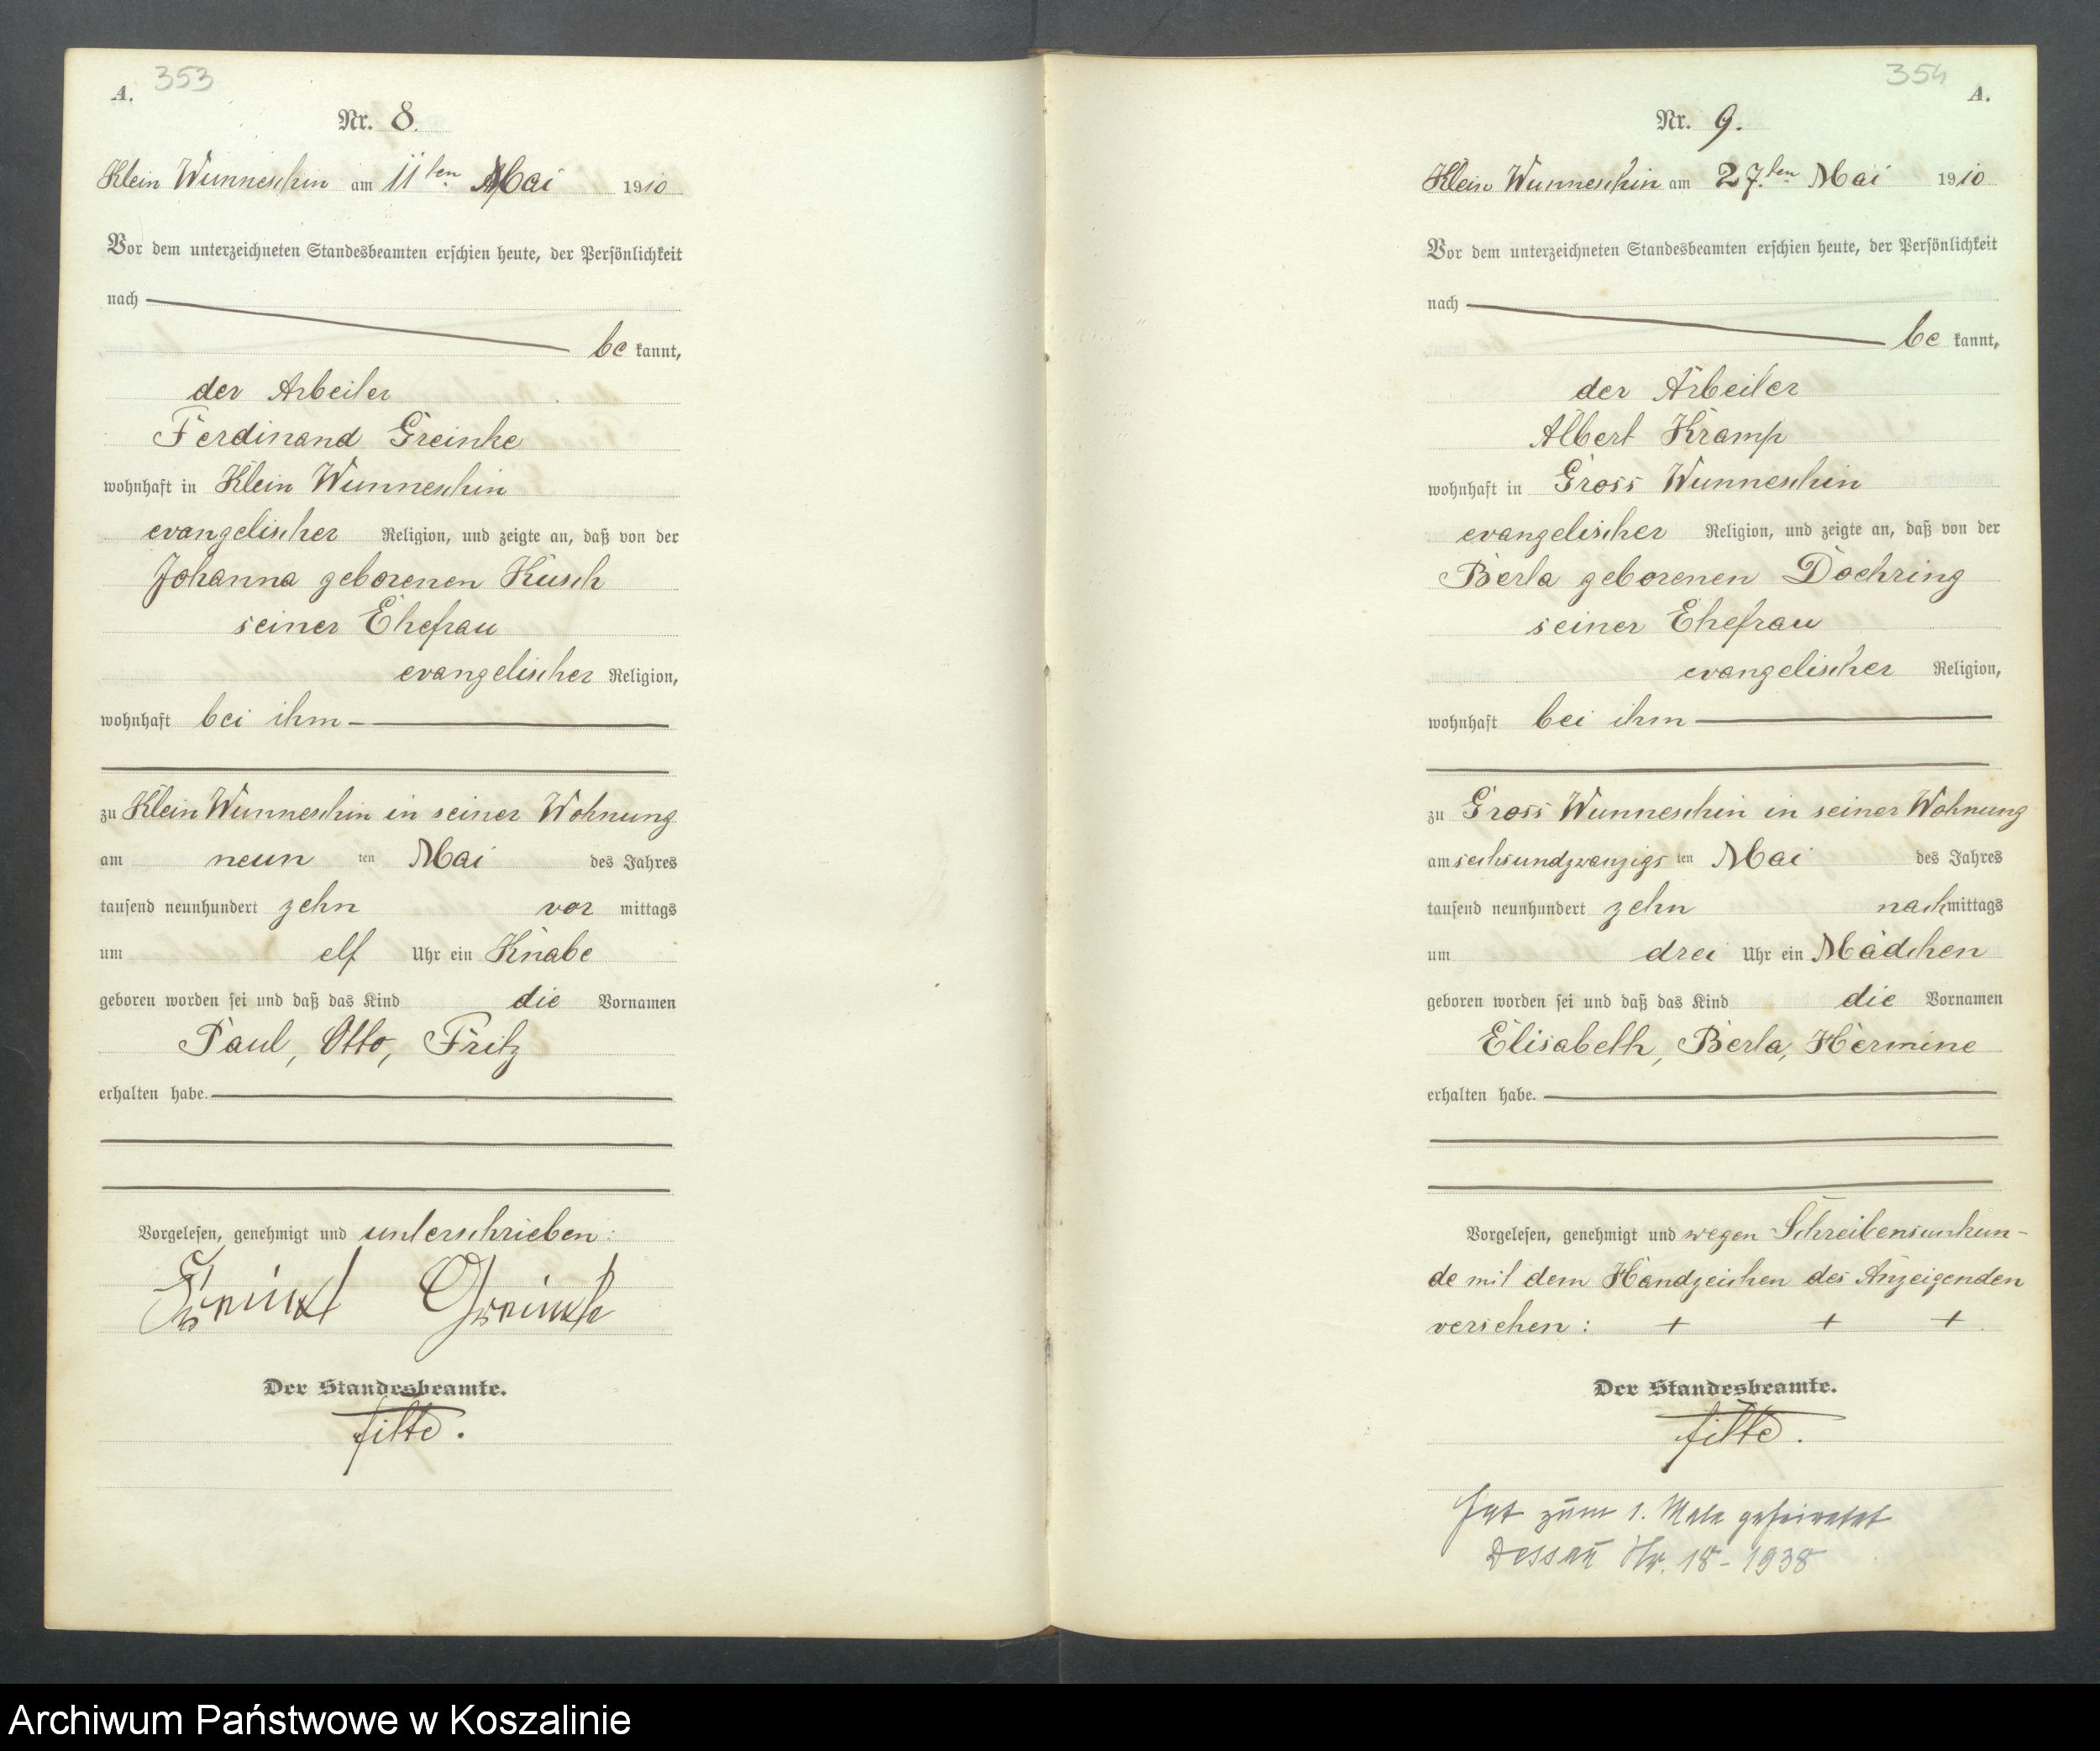 A. 353
Nr. 8.
Klein Wunneschin am 11ten Mai 1910
Vor dem unterzeichneten Standesbeamten erschien heute, der Persönlichkeit
nach
be kannt,
der Arbeiter
Ferdinand Greinke
wohnhaft in Klein Wunneschin
evangelischer Religion, und zeigte an, daß von der
Johanna geborenen Kusch
seiner Ehefrau
evangelischer Religion,
wohnhaft bei ihm
zu Klein Wunneschin in seiner Wohnung
am neun ten Mai des Jahres
tausend neunhundert zehn vor mittags
um elf Uhr ein Knabe
geboren worden sei und daß das Kind die Vornamen
Paul, Otto, Fritz
erhalten habe.
Vorgelesen, genehmigt und unterschrieben:
Greinke
Der Standesbeamte.
354 A.
Nr. 9.
Klein Wunneschin am 27.ten Mai 1910
Vor dem unterzeichneten Standesbeamten erschien heute, der Persönlichkeit
nach
be kannt,
der Arbeiter
Albert Kramp
wohnhaft in Gross Wunneschin
evangelischer Religion, und zeigte an, daß von der
Berta geborenen Doehring
seiner Ehefrau
evangelischer Religion,
wohnhaft bei ihm
zu Gross Wunneschin in seiner Wohnung
am sechsundzwanzigs ten Mai des Jahres
tausend neunhundert zehn nachmittags
um drei Uhr ein Mädchen
geboren worden sei und daß das Kind die Vornamen
Elisabeth, Berta, Hermine
erhalten habe.
Vorgelesen, genehmigt und wegen Schreibensunkun-
de mit dem Handzeichen des Anzeigenden
versehen: + + +
Der Standesbeamte.
Hat zum 1. Male geheiratet
Dessau Nr. 18 - 1938
Archiwum Państwowe w Koszalinie